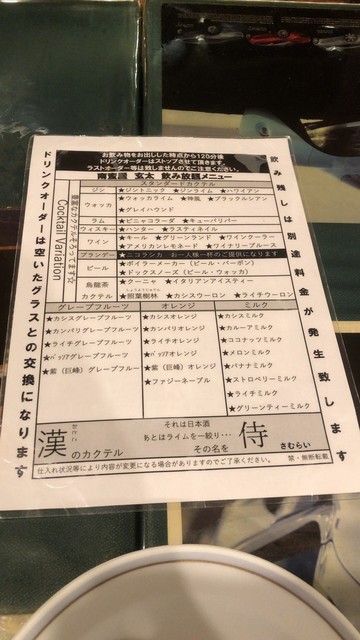 お飲み物をお出しした時点から120分後
ドリンクオーダーはストップさせて頂きます。
ラストオーダー等は致しませんのでご注意ください。
南蛮屋 玄太 飲み放題メニュー
飲み残しは別途料金が発生致します
ドリンクオーダーは空いたグラスとの交換になります
Cocktail Variation
豊富なカクテルそろってます☆
スタンダードカクテル
ジン ★ジントニック ★ジンライム ★ハワイアン
ウォッカ ★ウォッカライム ★神風 ★ブラックルシアン
★グレイハウンド
ラム ★ピニャコラーダ ★キューバリバー
ウィスキー ★ハンター ★ラスティネイル
ワイン ★キール ★グリーンランド ★ワインクーラー
★アメリカンレモネード ★ワイナリーブルース
ブランデー ★ニコラシカ お一人様一杯のご提供になります
ビール ★ボイラーメーカー(ビール・バーボン)
★ドックスノーズ(ビール・ウォッカ)
烏龍茶 ★クーニャ ★イタリアンアイスティー
カクテル ★照葉樹林 ★カシスウーロン ★ライチウーロン
グレープフルーツ オレンジ ミルク
★カシスグレープフルーツ ★カシスオレンジ ★カシスミルク
★カンパリグレープフルーツ ★カンパリオレンジ ★カルーアミルク
★ライチグレープフルーツ ★ライチオレンジ ★ココナッツミルク
★パッソアグレープフルーツ ★パッソアオレンジ ★メロンミルク
★紫(巨峰)グレープフルーツ ★紫(巨峰)オレンジ ★バナナミルク
★ファジーネーブル ★ストロベリーミルク
★ライチミルク
★グリーンティーミルク
漢 おとこ のカクテル
それは日本酒
あとはライムを絞り…
その名を 侍 さむらい
仕入れ状況等により内容が変更になる場合がありますのでご了承ください。 禁・無断転載